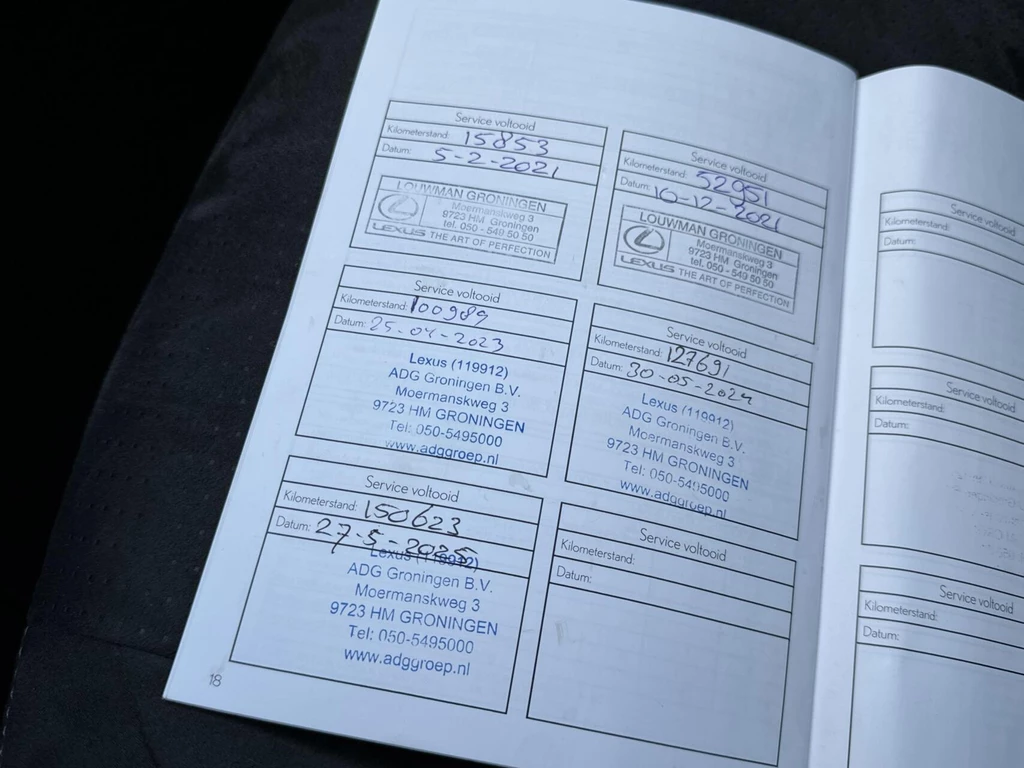 Service voltooid
Kilometerstand: 15853
Datum: 5-2-2021
LOUWMAN GRONINGEN
Moermanskweg 3
9723 HM Groningen
tel. 050 - 549 50 50
LEXUS THE ART OF PERFECTION
Service voltooid
Kilometerstand: 52951
Datum: 10-12-2021
LOUWMAN GRONINGEN
Moermanskweg 3
9723 HM Groningen
tel. 050 - 549 50 50
LEXUS THE ART OF PERFECTION
Service voltooid
Kilometerstand: 100989
Datum: 25-04-2023
Lexus (119912)
ADG Groningen B.V.
Moermanskweg 3
9723 HM GRONINGEN
Tel: 050-5495000
www.adggroep.nl
Service voltooid
Kilometerstand: 127691
Datum: 30-05-2024
Lexus (119912)
ADG Groningen B.V.
Moermanskweg 3
9723 HM GRONINGEN
Tel: 050-5495000
www.adggroep.nl
Service voltooid
Kilometerstand: 150623
Datum: 27-5-2025
Lexus (119912)
ADG Groningen B.V.
Moermanskweg 3
9723 HM GRONINGEN
Tel: 050-5495000
www.adggroep.nl
Service voltooid
Kilometerstand:
Datum:
18
Service voltooid
Kilometerstand:
Datum:
Service voltooid
Kilometerstand:
Datum:
Service voltooid
Kilometerstand:
Datum: